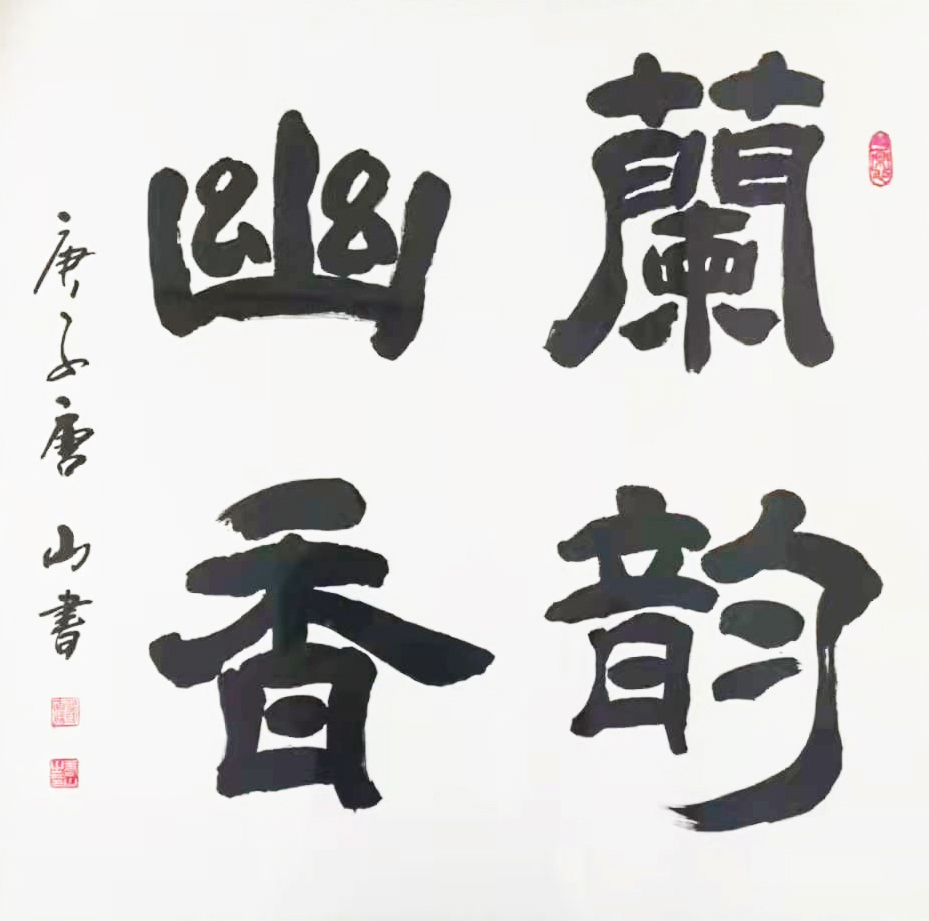 蘭韵
幽香
庚子唐山書